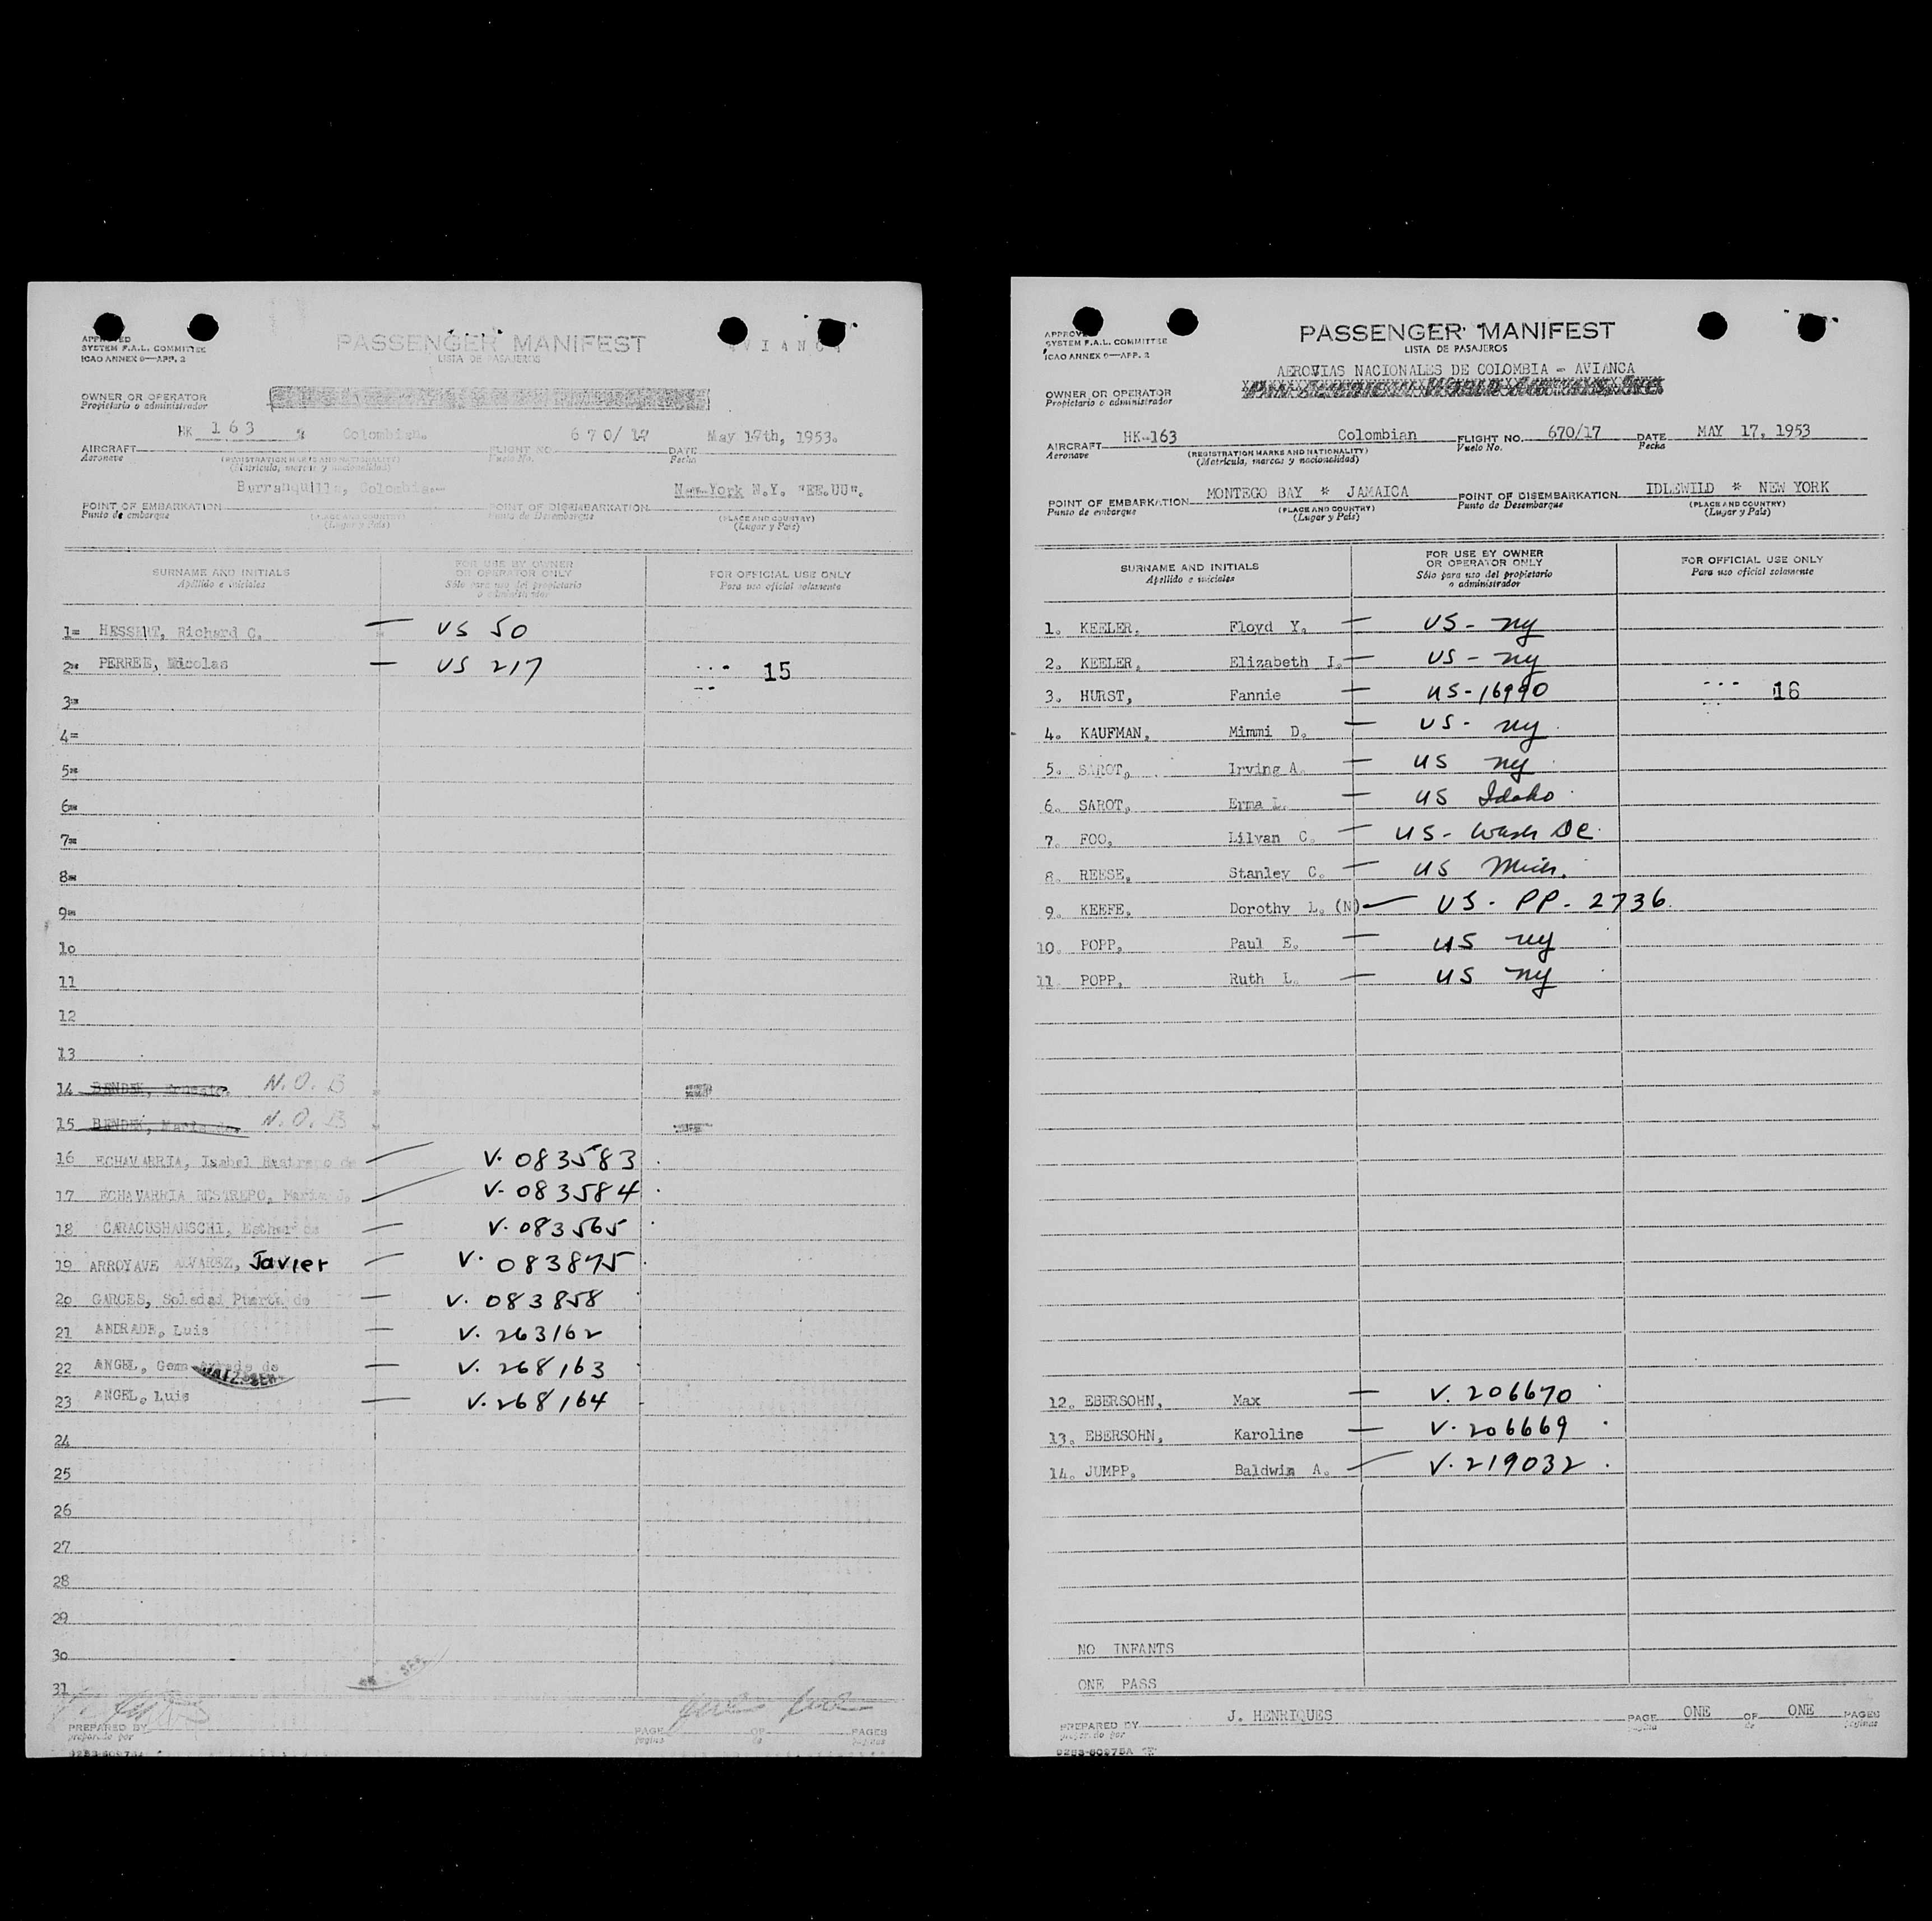 APPROVED
SYSTEM F.A.L. COMMITTEE
ICAO ANNEX 9—APP. 2
PASSENGER MANIFEST
LISTA DE PASAJEROS
AVIANCA
OWNER OR OPERATOR
Propietario o administrador
HK 163 Colombian. 670/17 May 17th, 1953.
AIRCRAFT FLIGHT NO. DATE
Aeronave (REGISTRATION MARKS AND NATIONALITY) Vuelo No. Fecha
(Matrícula, marcas y nacionalidad)
Barranquilla, Colombia.— New York N.Y. "EE.UU".
POINT OF EMBARKATION (PLACE AND COUNTRY) POINT OF DISEMBARKATION (PLACE AND COUNTRY)
Punto de embarque (Lugar y País) Punto de Desembarque (Lugar y País)
SURNAME AND INITIALS
Apellido e iniciales
FOR USE BY OWNER
OR OPERATOR ONLY
Sólo para uso del propietario
o administrador
FOR OFFICIAL USE ONLY
Para uso oficial solamente
1= HESSERT, Richard C. — US 50
2= PERREE, Nicolas — US 217 15
3=
4=
5=
6=
7=
8=
9=
10
11
12
13
14 BENDEK, Ernesto. N.O.B
15 BENDEK, Maria de. N.O.B
16 ECHAVARRIA, Isabel Restrepo de — V. 083583
17 ECHAVARRIA RESTREPO, Maria J. — V- 083584
18 CARACUSHANSCHI, Esther de — V. 083565
19 ARROYAVE ALVAREZ, Javier — V. 083875
20 GARCES, Soledad Puerta de — V. 083858
21 ANDRADE, Luis — V. 263162
22 ANGEL, Gema de — V. 268163
23 ANGEL, Luis — V. 268164
24
25
26
27
28
29
30
31
PREPARED BY PAGE OF PAGES
preparado por página de páginas
APPROVED
SYSTEM F.A.L. COMMITTEE
ICAO ANNEX 9—APP. 2
PASSENGER MANIFEST
LISTA DE PASAJEROS
AEROVIAS NACIONALES DE COLOMBIA - AVIANCA
OWNER OR OPERATOR PAN AMERICAN WORLD AIRWAYS, INC
Propietario o administrador
AIRCRAFT HK-163 Colombian FLIGHT NO. 670/17 DATE MAY 17, 1953
Aeronave (REGISTRATION MARKS AND NATIONALITY) Vuelo No. Fecha
(Matrícula, marcas y nacionalidad)
POINT OF EMBARKATION MONTEGO BAY * JAMAICA POINT OF DISEMBARKATION IDLEWILD * NEW YORK
Punto de embarque (PLACE AND COUNTRY) Punto de Desembarque (PLACE AND COUNTRY)
(Lugar y País) (Lugar y País)
SURNAME AND INITIALS
Apellido e iniciales
FOR USE BY OWNER
OR OPERATOR ONLY
Sólo para uso del propietario
o administrador
FOR OFFICIAL USE ONLY
Para uso oficial solamente
1. KEELER, Floyd Y. — US - ny
2. KEELER, Elizabeth I. — US - ny
3. HURST, Fannie — US-16990 16
4. KAUFMAN, Mimmi D. — US - ny
5. SAROT, Irving A. — US ny
6. SAROT, Erma L. — US Idaho
7. FOO, Lilyan C. — US - Wash DC
8. REESE, Stanley C. — US Mich.
9. KEEFE, Dorothy L. (N) — US - PP - 2736
10. POPP, Paul E. — US ny
11. POPP, Ruth L. — US ny
12. EBERSOHN, Max — V. 206670
13. EBERSOHN, Karoline — V. 206669
14. JUMPP, Baldwin A. — V. 219032
NO INFANTS
ONE PASS
PREPARED BY J. HENRIQUES PAGE ONE OF ONE PAGES
preparado por página de páginas
9283-60275A